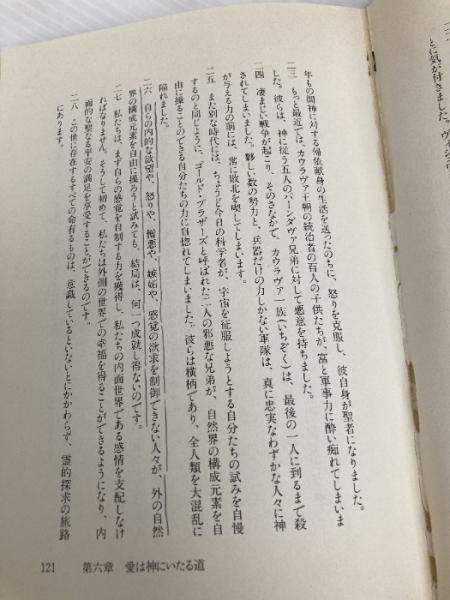 とに気が付きました。ヴィシュヴ
年もの間神に対する帰依献身の生活を送ったのちに、怒りを克服し、彼自身が聖者になりました。
二三　もっと最近では、カウラヴァ王朝の統治者の百人の子供たちが、富と軍事力に酔い痴れてしまいま
した。彼らは、神に従う五人のパーンダヴァ兄弟に対して悪意を持ちました。
二四　凄まじい戦争が起こり、そのさなかで、カウラヴァ一族(いちぞく)は、最後の一人に到るまで殺
されてしまいました。夥しい数の勢力と、兵器だけの力しかない軍隊は、真に忠実なわずかな人々に神
が与える力の前には、常に敗北を喫してしまいます。
二五　また別な時代には、ちょうど今日の科学者が、宇宙を征服しようとする自分たちの試みを自慢
するのと同じように、ゴールド・ブラザーズと呼ばれた二人の邪悪な兄弟が、自然界の構成元素を自
由に操ることのできる自分たちの力に自惚れてしまいました。彼らは横柄であり、全人類を大混乱に
陥れました。
二六　自らの内的な欲望や、怒りや、憎悪や、嫉妬や、感覚の欲求を制御できない人々が、外の自然
界の構成元素を自由に操ろうと試みても、結局は、何一つ成就し得ないのです。
二七　私たちは、まず自らの感覚を自制する力を獲得し、私たちの内面世界である感情を支配しなけ
ればなりません。そうして初めて、私たちは外側の世界での幸福を得ることができるようになり、内
面的な聖なる平安の満足を享受することができるのです。
二八　この世に存在するすべての命有るものは、意識しているといないとにかかわらず、霊的探求の旅路
にあります。
121　第六章　愛は神にいたる道